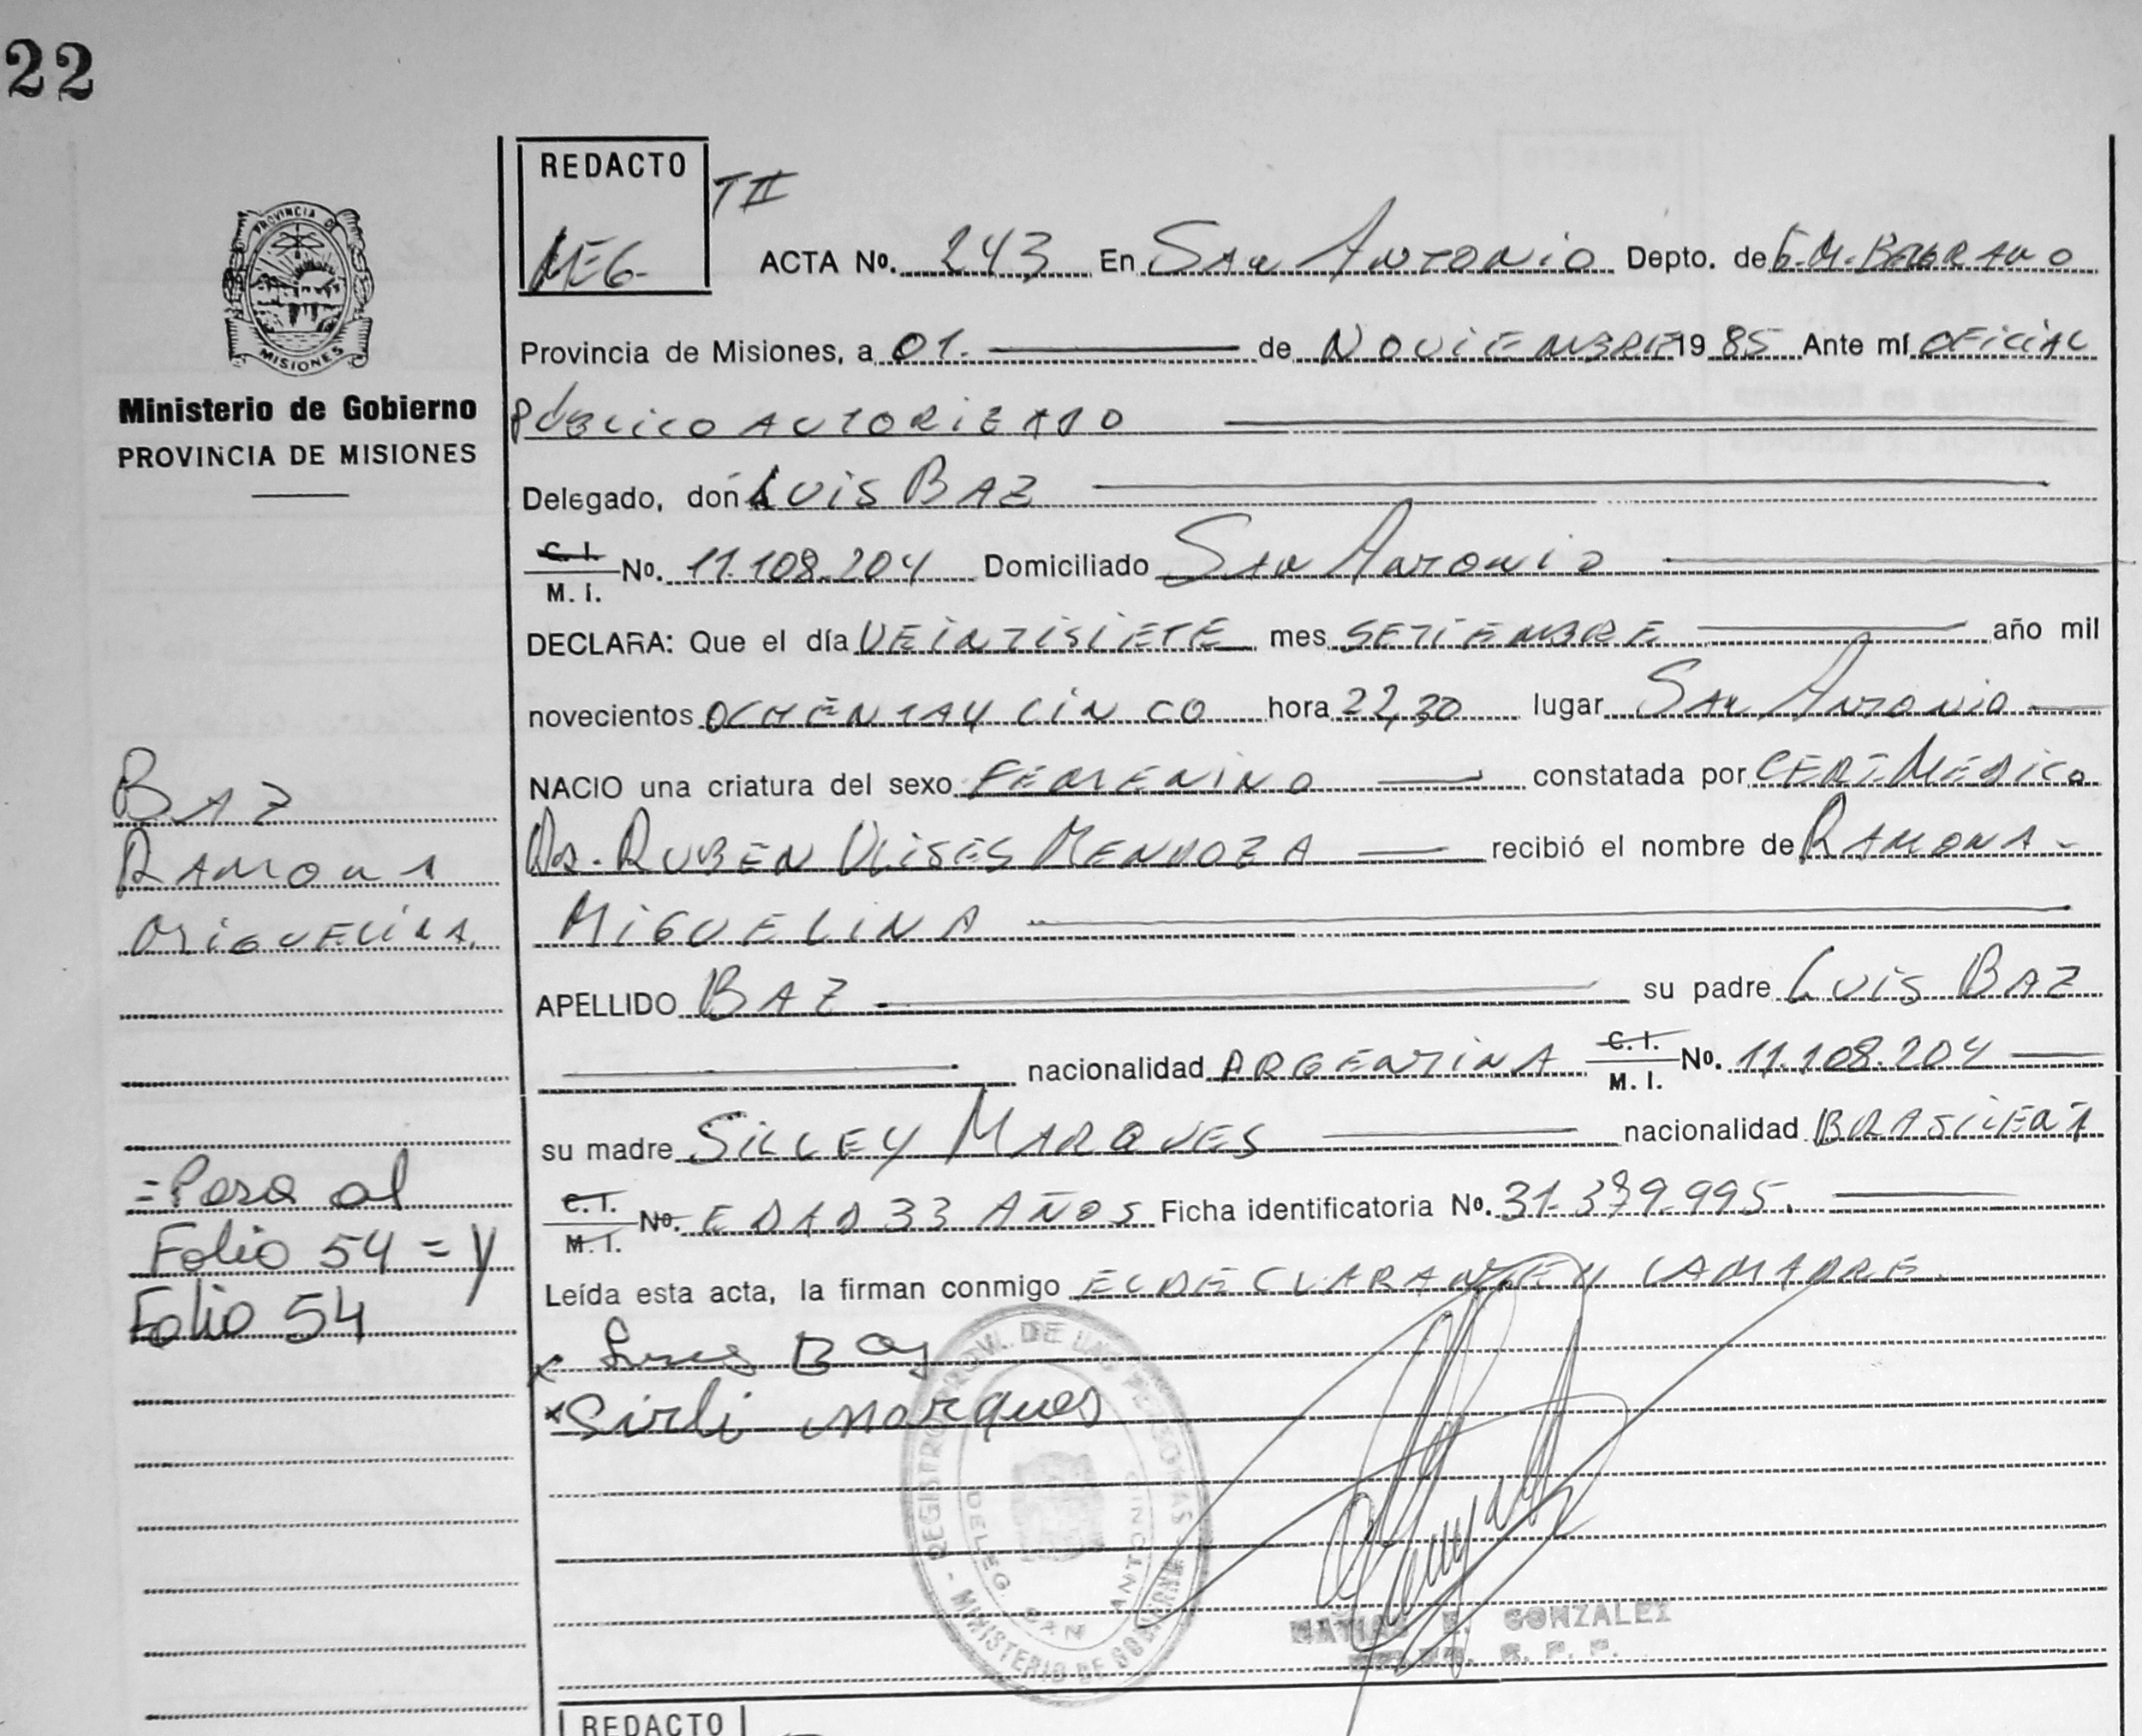 22
REDACTO
TII
MEG-
ACTA No. 243 En San Antonio Depto. de G.M. BELGRANO
PROVINCIA DE
MISIONES
Ministerio de Gobierno
PROVINCIA DE MISIONES
Provincia de Misiones, a 01. de NOVIEMBRE 1985 Ante mí OFICIAL
PÚBLICO AUTORIZADO
Delegado, don LUIS BAZ
C. I.
M. I. No. 11.108.204 Domiciliado San Antonio
DECLARA: Que el día VEINTISIETE mes SETIEMBRE año mil
novecientos OCHENTA Y CINCO hora 22,30 lugar San Antonio
NACIO una criatura del sexo FEMENINO constatada por CERT. MEDICO
Dr. RUBEN ULISES MENDOZA recibió el nombre de RAMONA-
MIGUELINA
BAZ
RAMONA
MIGUELINA.
APELLIDO BAZ su padre LUIS BAZ
nacionalidad ARGENTINA C. I. M. I. No. 11.108.204
su madre SILLEY MARQUES nacionalidad BRASILEÑA
C. I.
M. I. No. EDAD 33 AÑOS Ficha identificatoria No. 31.379.995.
Leída esta acta, la firman conmigo EL DECLARANTE Y LA MADRE.
=Pasa al
Folio 54 = y
Folio 54
x Luis Baz
x Sirli Marques
REGISTRO PROV. DE LAS PERSONAS - MINISTERIO DE GOBIERNO
DELEG. SAN ANTONIO
MATIAS E. GONZALEZ
R. P. P.
REDACTO